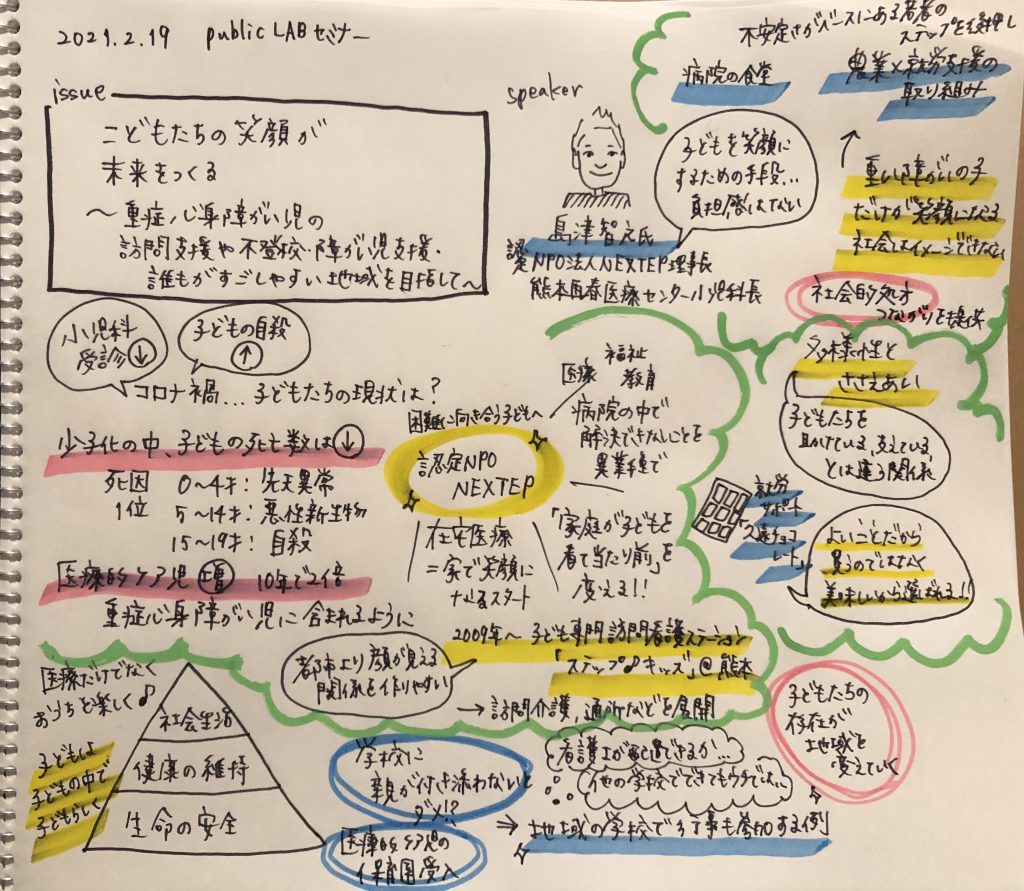 2021.2.19 public LAB セミナー
issue
こどもたちの笑顔が
未来をつくる
～重症心身障がい児の
訪問支援や不登校・障がい児支援・
誰もがすごしやすい地域を目指して～
speaker
島津智之氏
認定NPO法人NEXTEP理事長
熊本再春医療センター小児科長
子どもを笑顔に
するための手段…
負担感はない
不安定さがベースにある若者の
ステップを後押し
病院の食堂
農業×就労支援の
取り組み
↑
重い障がいの子
だけが笑顔になる
社会はイメージできない
社会的処方
つながりを提供
小児科
受診 ↓
子どもの自殺
↑
コロナ禍…子どもたちの現状は？
少子化の中、子どもの死亡数は↓
死因 0～4才：先天異常
1位 5～14才：悪性新生物
15～19才：自殺
医療的ケア児 増 10年で2倍
重症心身障がい児に含まれるように
困難に向き合う子どもへ
認定NPO
NEXTEP
医療
福祉
教育
病院の中で
解決できないことを
異業種で
在宅医療
＝家で笑顔に
なるスタート
「家庭が子どもを
看て当たり前」を
変える!!
2009年～ 子ども専門訪問看護ステーション
「ステップ♪キッズ」@熊本
→訪問介護，通所などを展開
都市より顔が見える
関係を作りやすい
多様性と
ささえあい
子どもたちを
助けている、支えている
とは違う関係
就労
サポート
「久遠チョコ
レート」
よいことだから
買うのではなく
美味しいから選ばれる!!
医療だけでなく
おうちを楽しく♪
社会生活
健康の維持
生命の安全
子どもは
子どもの中で
子どもらしく
学校に
親が付き添わないと
ダメ!?
医療的ケア児の
保育園受入
看護士が配置できるが…
他の学校でできてもウチでは…
⇒地域の学校で行事も参加する例
子どもたちの
存在が
地域を
変えていく